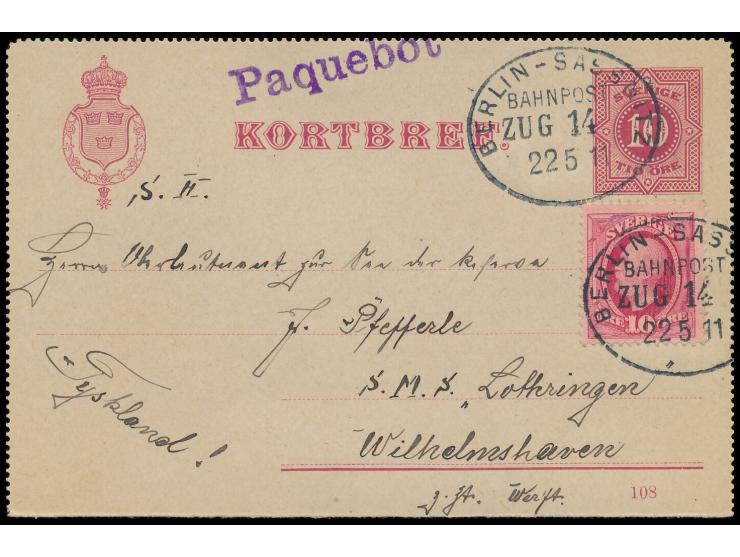 Paquebot
KORTBREF.
SVERIGE
10
TIO ÖRE
BERLIN - SASSNITZ
BAHNPOST
ZUG 14
22 5 11
SVERIGE
10
BERLIN - SASS
BAHNPOST
ZUG 14
22 5 11
S. H.
Herrn Oberleutnant zur See der Reserve
Pfefferle
S. M. S. „Lothringen"
Wilhelmshaven
z. Zt. Werft.
Tyskland!
108